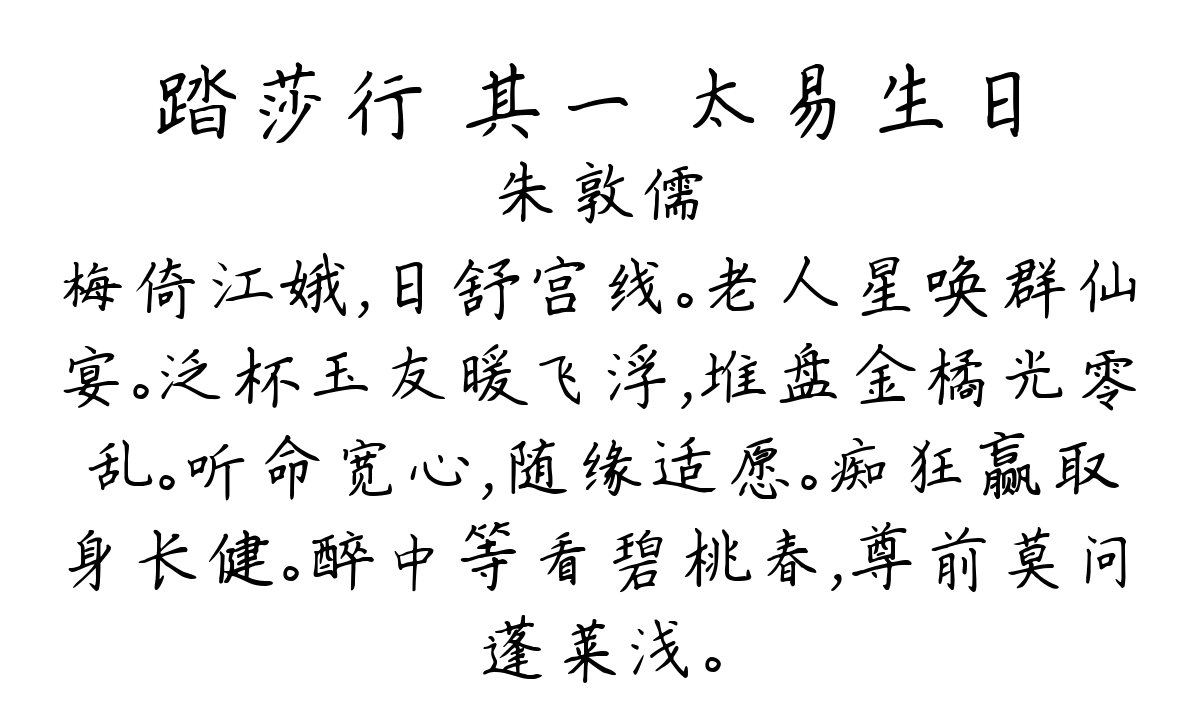 踏莎行 其一 太易生日
朱敦儒
梅倚江娥,日舒宫线。老人星唤群仙
宴。泛杯玉友暖飞浮,堆盘金橘光零
乱。听命宽心,随缘适愿。痴狂赢取
身长健。醉中等看碧桃春,尊前莫问
蓬莱浅。